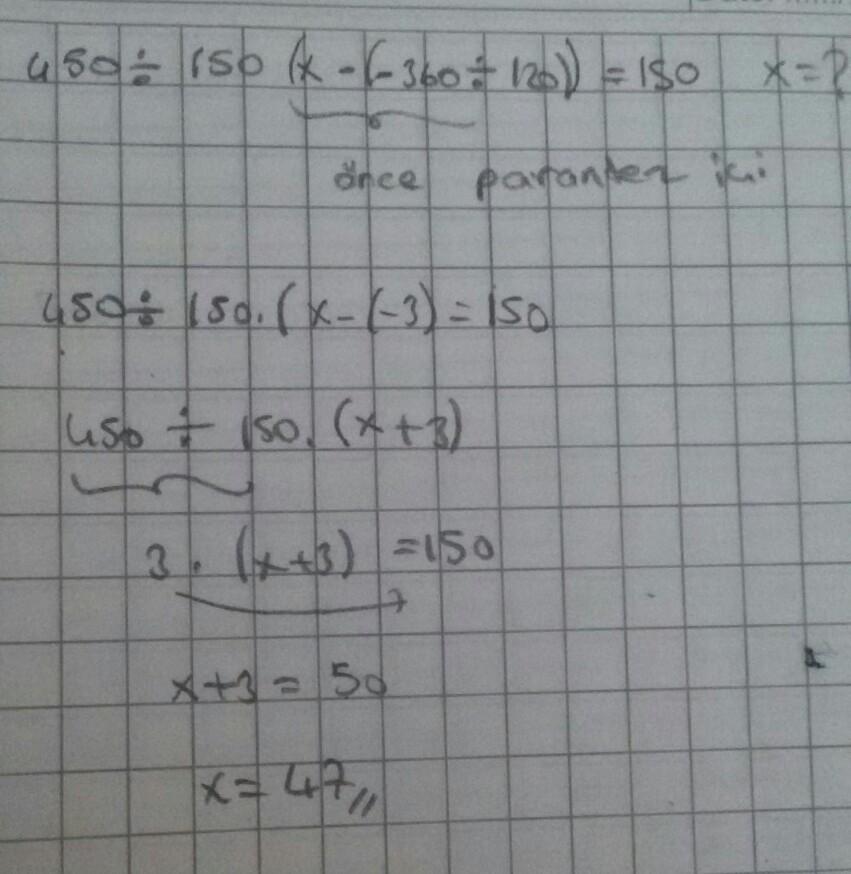 450 ÷ 150 (x - (-360 ÷ 120)) = 150 x = ?
önce parantez içi
450 ÷ 150 . (x - (-3) = 150
450 ÷ 150 . (x + 3)
3 . (x + 3) = 150
x + 3 = 50
x = 47 //